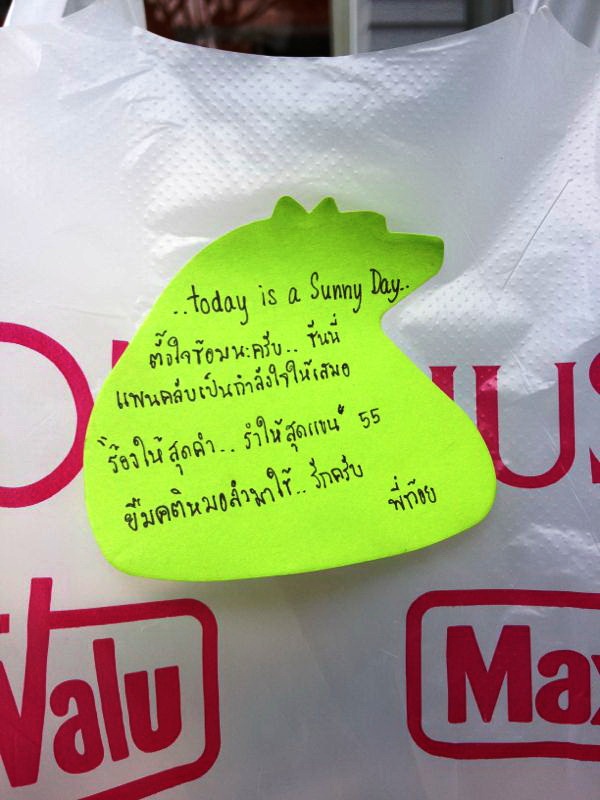 ..today is a Sunny Day..
ตั้งใจซ้อมนะครับ.. ซันนี่
แฟนคลับเป็นกำลังใจให้เสมอ
"ร้องให้สุดคำ.. รำให้สุดแขน" 55
ยืมคติหมอลำมาใช้.. รักครับ
พี่ก้อย
Valu
Max